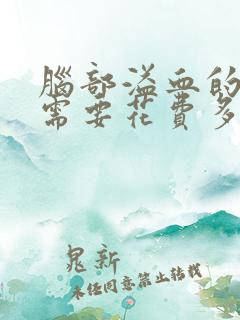 腦部溢血的
需要花費多
晁新
未经同意禁止转载